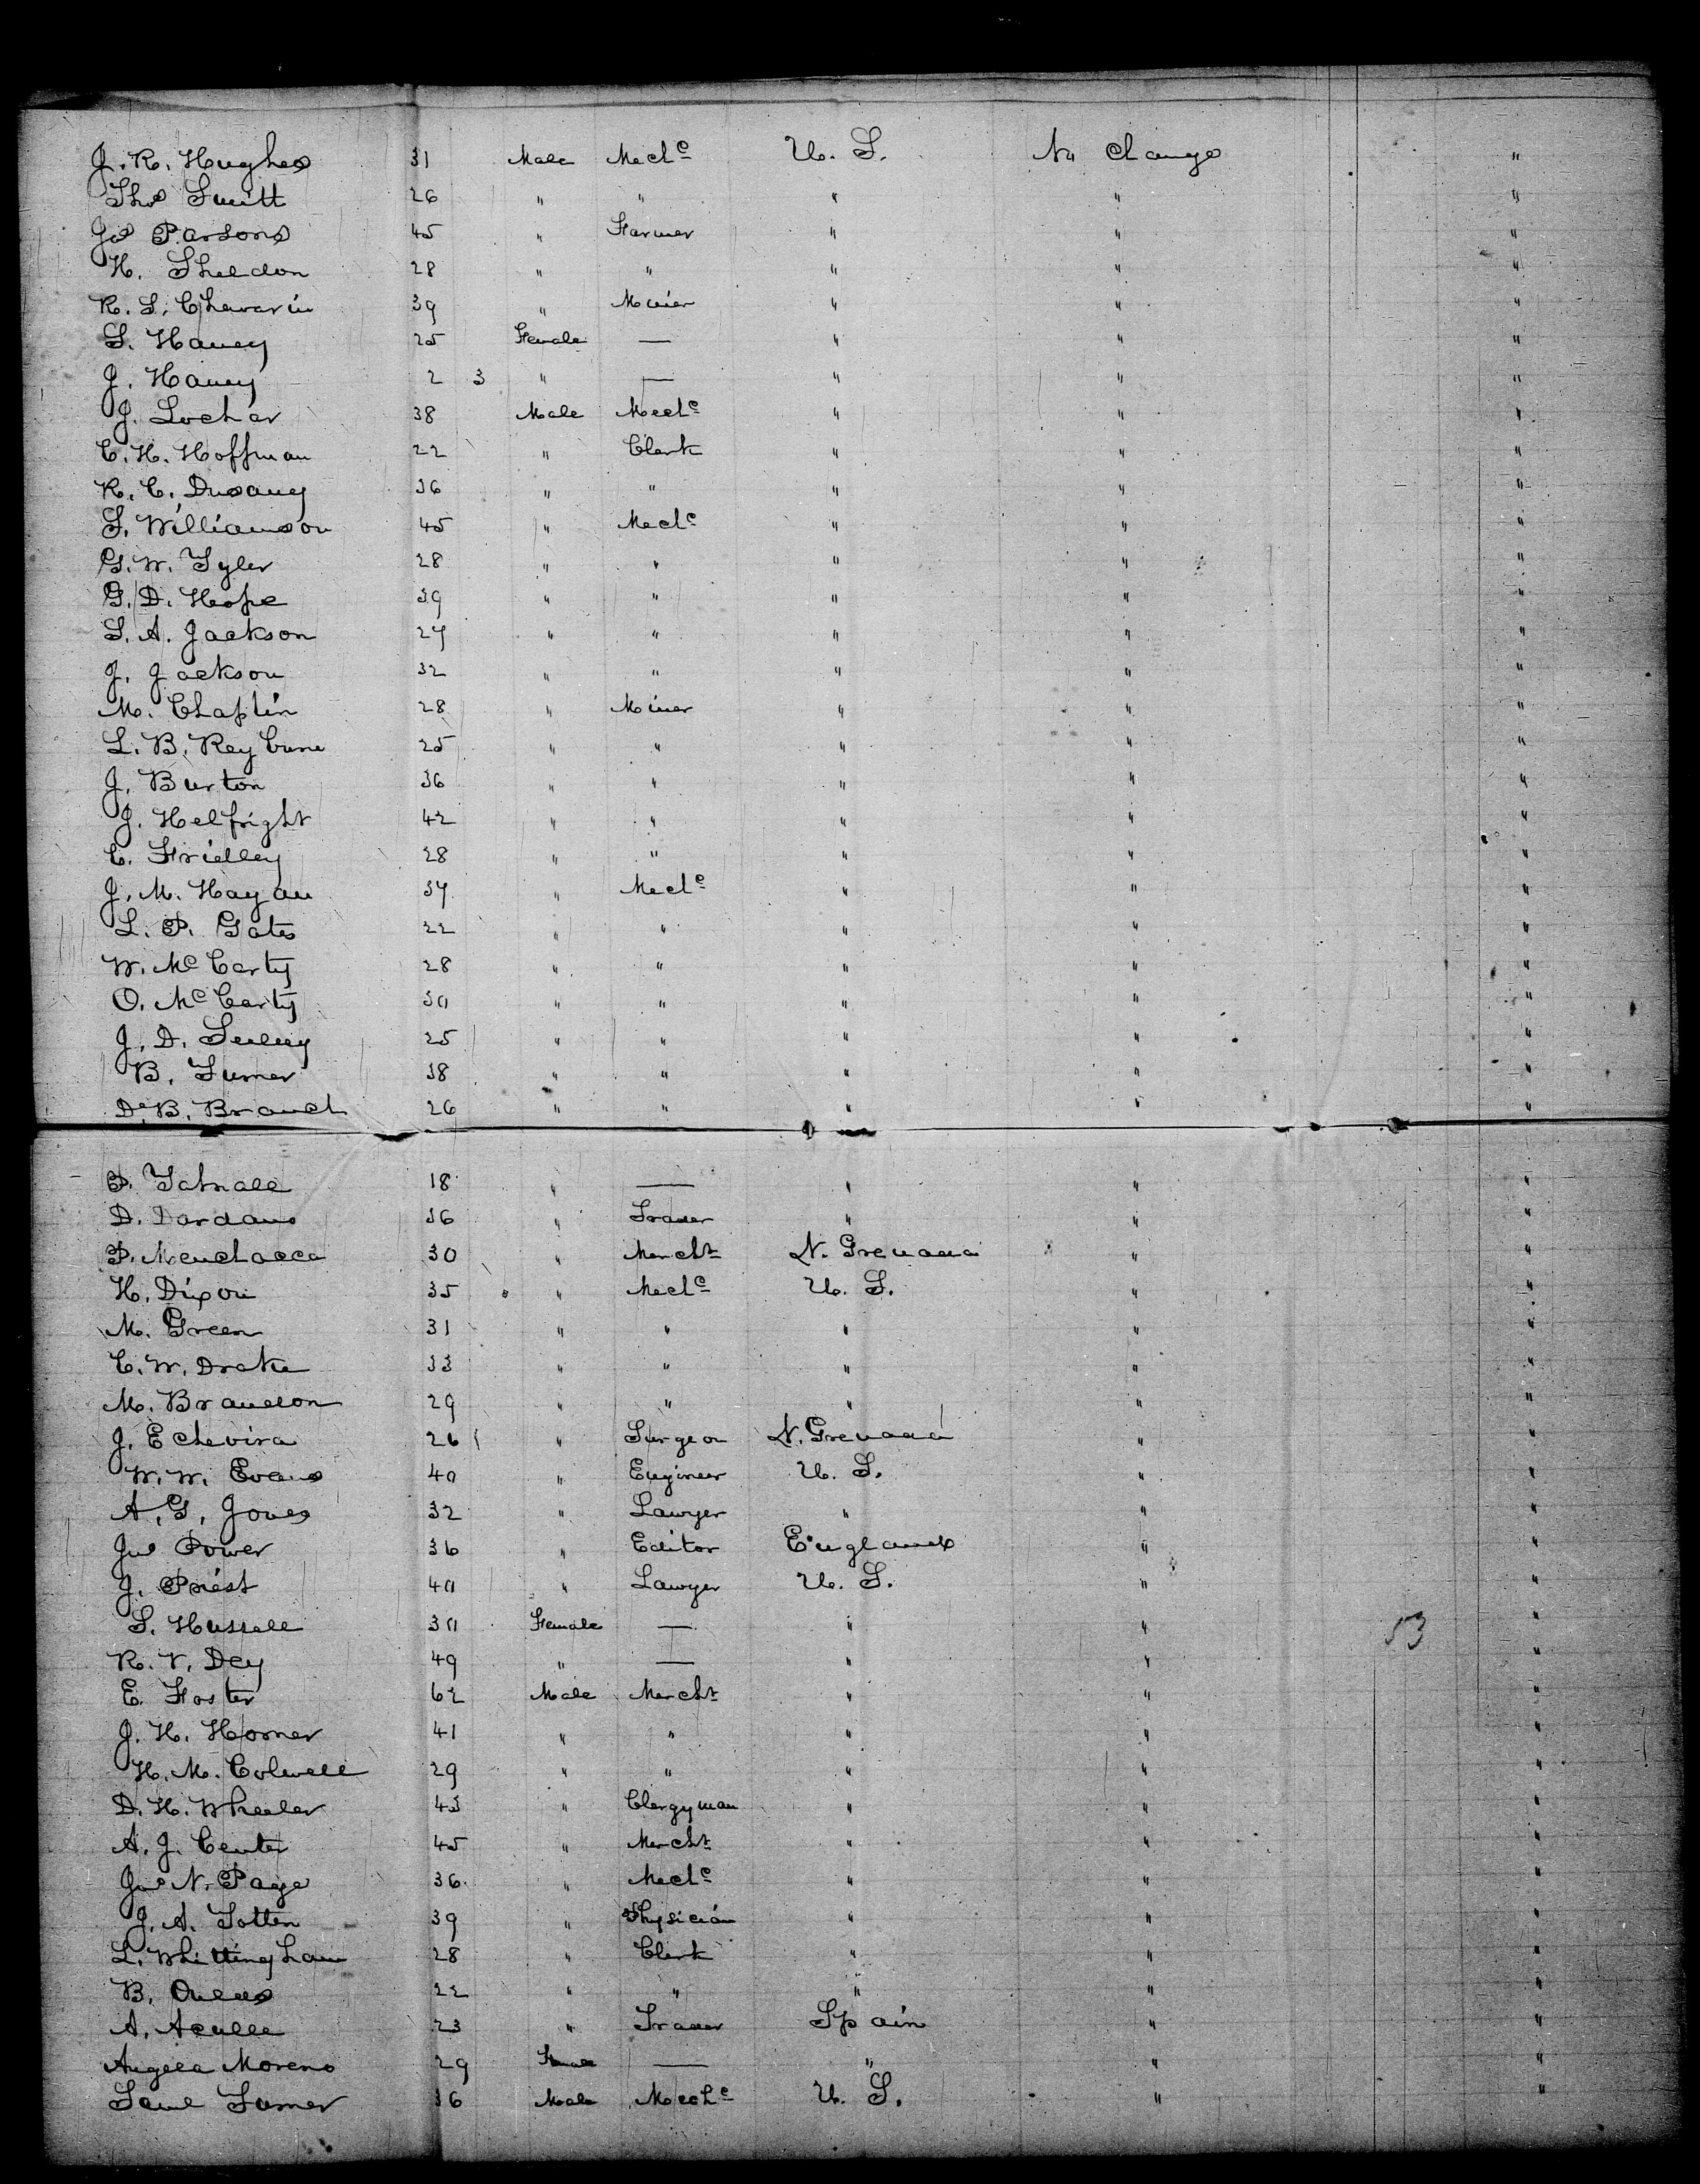 J. R. Hughes 31 Male Mech<sup>c</sup> U. S. No Change "
Tho<sup>s</sup> Smitt 26 " " " " "
Jos Parsons 45 " Farmer " " "
H. Sheldon 28 " " " " "
R. S. Chavarin 39 " Miner " " "
S. Haney 25 Female — " " "
J. Haney 2 3 " — " " "
J. Lochar 38 Male Mech<sup>c</sup> " " "
C. H. Hoffman 22 " Clerk " " "
R. C. Dusany 36 " " " " "
S. Williamson 45 " Mech<sup>c</sup> " " "
G. W. Tyler 28 " " " " "
G. D. Hope 39 " " " " "
S. A. Jackson 27 " " " " "
J. Jackson 32 " " " " "
M. Chaplin 28 " Miner " " "
L. B. Reyburn 25 " " " " "
J. Burton 36 " " " " "
J. Helfright 42 " " " " "
C. Fridley 28 " " " " "
J. M. Hagan 37 " Mech<sup>c</sup> " " "
L. P. Gates 22 " " " " "
W. McCarty 28 " " " " "
O. McCarty 30 " " " " "
J. D. 25 " " " " "
B. Turner 38 " " " " "
D. B. Branch 26 " " " " "
P. Tatnall 18 " — " " "
D. Dardans 36 " Trader " " "
P. Menchacca 30 " Mercht N. Grenada " "
H. Dixon 35 " Mech<sup>c</sup> U. S. " "
M. Green 31 " " " " "
C. W. Drake 33 " " " " "
M. Brandon 29 " " " " "
J. Echevira 26 " Surgeon N. Grenada " "
W. W. Evans 40 " Engineer U. S. " "
A. G. Jones 32 " Lawyer " " "
Jno Power 36 " Editor England " "
J. Priest 40 " Lawyer U. S. " "
S. Hussell 30 Female — " " 53 "
R. V. Dey 49 " — " " "
E. Foster 62 Male Mercht " " "
J. H. Horner 41 " " " " "
H. M. Colwell 29 " " " " "
D. H. Wheeler 43 " Clergyman " " "
A. J. Center 45 " Mercht " " "
Jno N. Page 36 " Mech<sup>c</sup> " " "
J. A. Totten 39 " Physician " " "
L. Whittingham 28 " Clerk " " "
B. Owens 22 " " " " "
A. 23 " Trader Spain " "
Angela Moreno 29 Female — " " "
Saml Turner 36 Male Mech<sup>c</sup> U. S. " "